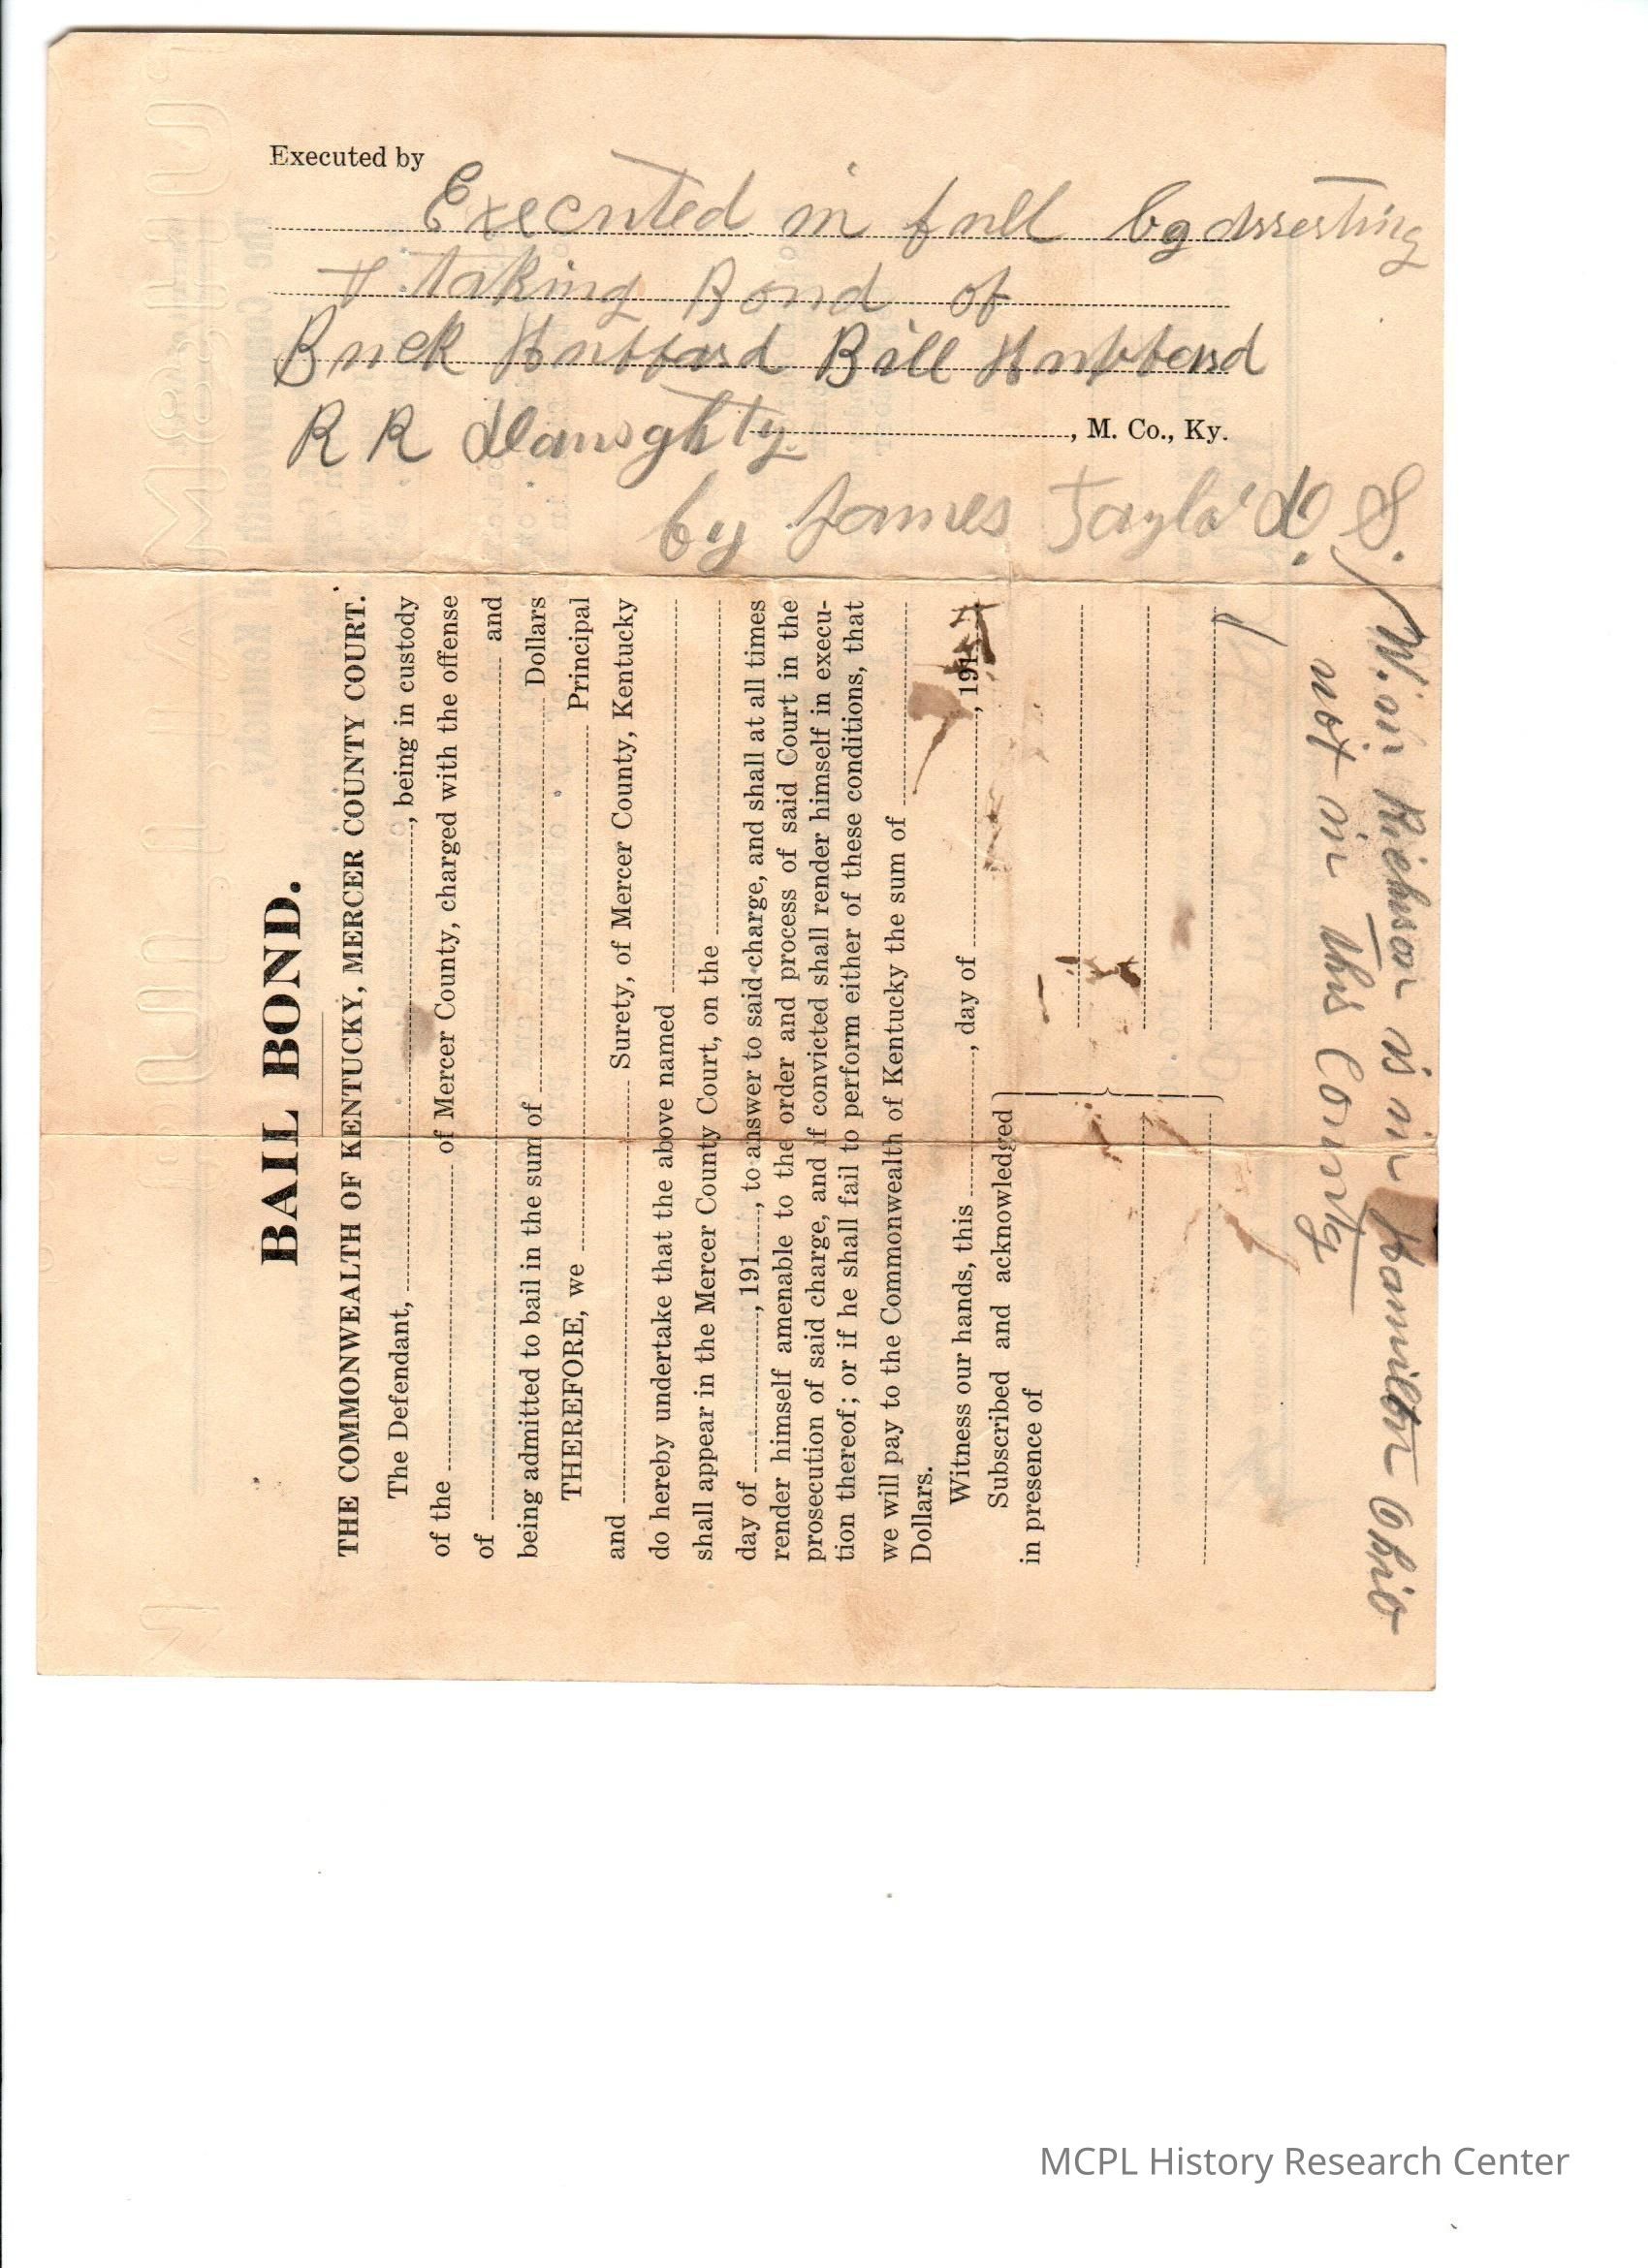 Executed by
Executed in full by arresting
& taking Bond of
Buck Hubbard Bill Hubbard
R R Daughty, M. Co., Ky.
by James Taylo' D. S.
BAIL BOND.
THE COMMONWEALTH OF KENTUCKY, MERCER COUNTY COURT.
The Defendant, , being in custody
of the of Mercer County, charged with the offense
of and
being admitted to bail in the sum of Dollars
THEREFORE, we Principal
and Surety, of Mercer County, Kentucky
do hereby undertake that the above named
shall appear in the Mercer County Court, on the
day of , 191 , to answer to said charge, and shall at all times
render himself amenable to the order and process of said Court in the
prosecution of said charge, and if convicted shall render himself in execu-
tion thereof; or if he shall fail to perform either of these conditions, that
we will pay to the Commonwealth of Kentucky the sum of
Dollars.
Witness our hands, this , day of , 191
Subscribed and acknowledged
in presence of
is in hamilton Ohio
not in this County
MCPL History Research Center